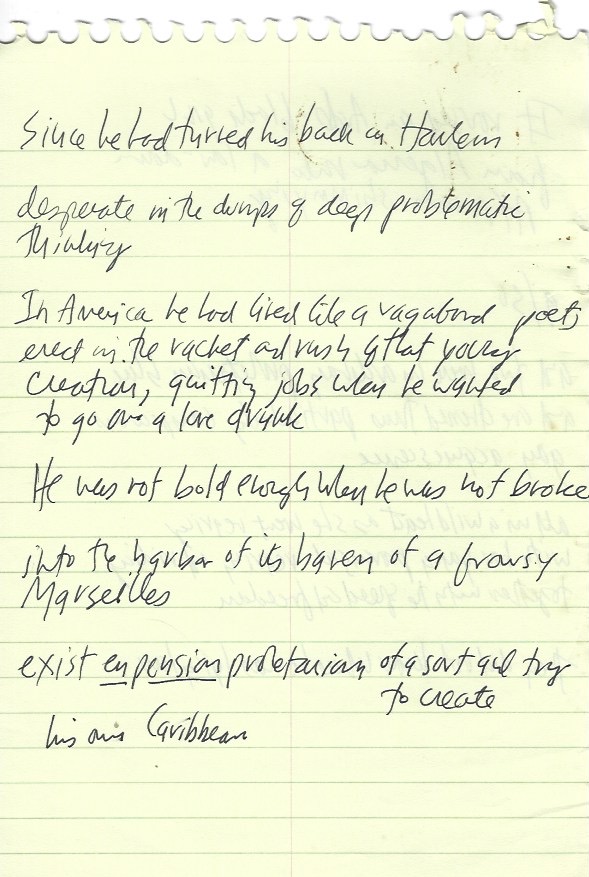 Since he had turned his back on Harlem
desperate in the dumps of deep problematic
thinking
In America he had lived like a vagabond poet,
erect in the racket and rush of that young
creation, quitting jobs when he wanted
to go on a love drunk
He was not bold enough when he was not broke
into the harbor of its haven of a frowsy
Marseilles
exist en pension proletarian of a sort and try
to create
his own Caribbean